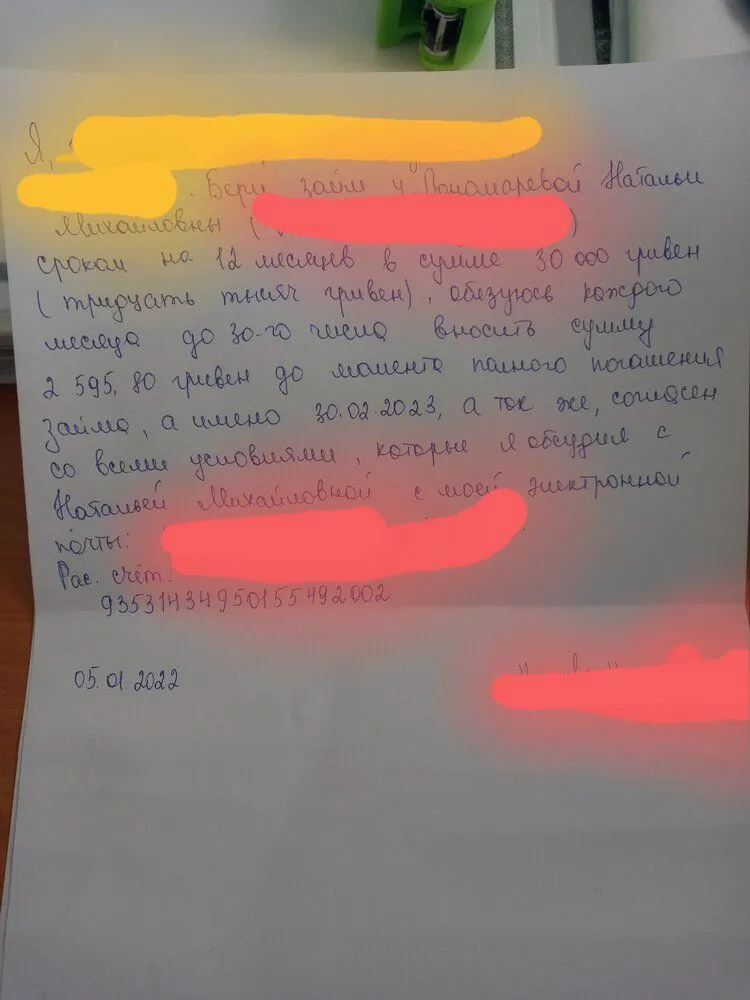 Я,
. Беру займ у Пономаревой Натальи
Михайловны ( )
сроком на 12 месяцев в сумме 30 000 гривен
( тридцать тысяч гривен), обезуюсь каждого
месяца до 30-го числа вносить сумму
2 595,80 гривен до момента полного погашения
займа, а имено 30.02.2023, а так же, согласен
со всеми условиями, которые я обсудил с
Натальей Михайловной с моей электронной
почты:
Рас. счёт:
93531434950155492002
05.01.2022